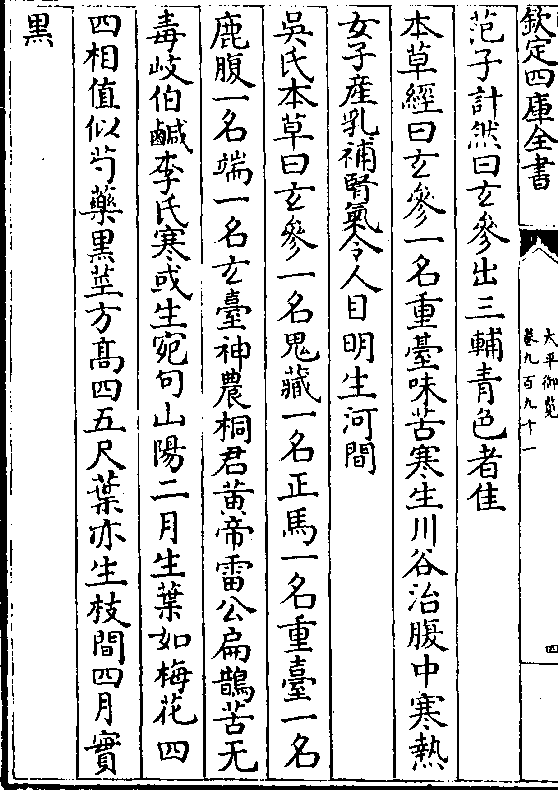 欽定四庫全書
太平御覽
卷九百九十一
四
范子計然曰玄參出三輔青色者佳
本草經曰玄參一名重臺味苦寒生川谷治腹中寒熱
女子産乳補腎氣令人目明生河間
吳氏本草曰玄參一名鬼藏一名正馬一名重臺一名
鹿腹一名端一名玄臺神農桐君黄帝雷公扁鵲苦无
毒岐伯鹹李氏寒或生宛句山陽二月生葉如梅花四
四相值似芍藥黒莖方髙四五尺葉亦生枝間四月實
黒